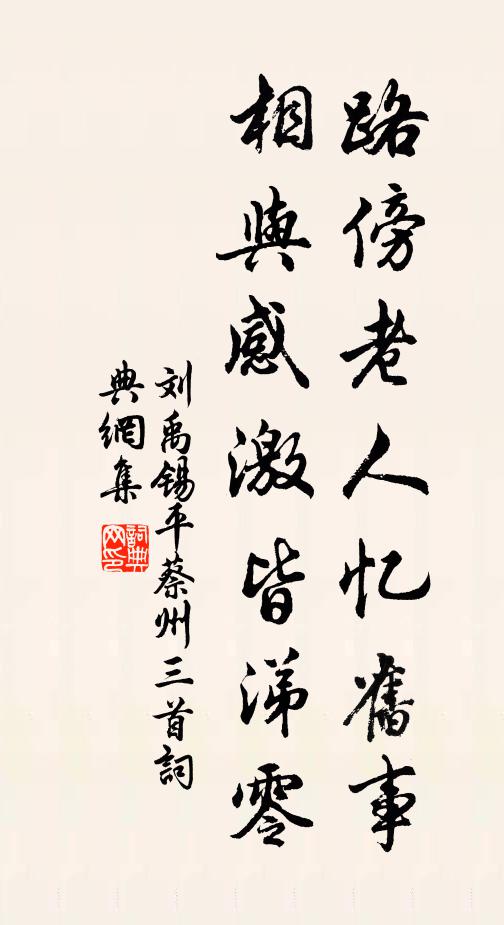 路傍老人忆舊事
相與感激皆涕零
刘禹锡平蔡州三首詞
典網集
詞典
网印